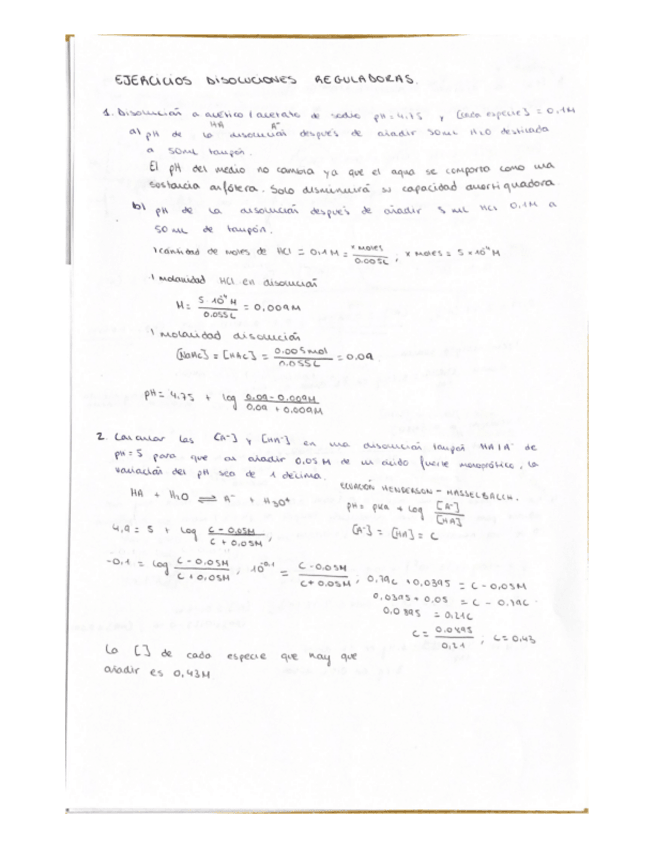 EJERCICIOS DISOLUCIONES REGULADORAS.
1. Disolución a acético / acetato de sodio pH=4.75 y [cada especie] = 0,1M
HA A⁻
a) pH de la disolución después de añadir 50mL H₂O destilada
a 50mL tampón.
El pH del medio no cambia ya que el agua se comporta como una
sustancia anfótera. Solo disminuirá su capacidad amortiguadora
b) pH de la disolución después de añadir 5 mL HCl 0,1M a
50 mL de tampón.
1 cantidad de moles de HCl = 0,1M = x moles / 0.005L ; x moles = 5×10⁻⁴ M
1 molaridad HCl en disolución
M = 5·10⁻⁴ M / 0.055L = 0,009M
1 molaridad disolución
[NaAc] = [HAc] = 0.005mol / 0.055L = 0.09
pH = 4.75 + log 0.09 - 0.009M / 0.09 + 0.009M
2. Calcular las [A⁻] y [HA] en una disolución tampón HA/A⁻ de
pH=5 para que al añadir 0,05M de un ácido fuerte monoprótico, la
variación del pH sea de 1 décima.
ECUACIÓN HENDERSON-HASSELBALCH.
HA + H₂O ⇌ A⁻ + H₃O⁺
pH = pKa + log [A⁻] / [HA]
4,9 = 5 + log C - 0,05M / C + 0,05M ;
[A⁻] = [HA] = C
-0,1 = log C - 0,05M / C + 0,05M ; 10⁻⁰·¹ = C - 0,05M / C + 0,05M ; 0,79C + 0,0395 = C - 0,05M
0,0395 + 0.05 = C - 0.79C
0,0895 = 0,21C
C = 0.0895 / 0,21 ; C = 0,43
La [ ] de cada especie que hay que
añadir es 0,43M